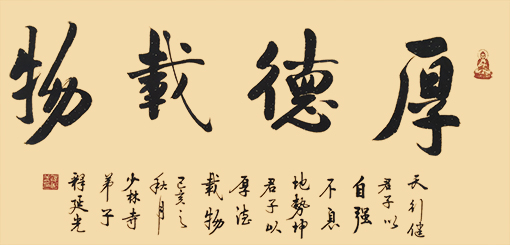 厚德載物
天行健
君子以
自强
不息
地勢坤
君子以
厚德
載物
己亥之
秋月
少林寺
弟子
釋延光